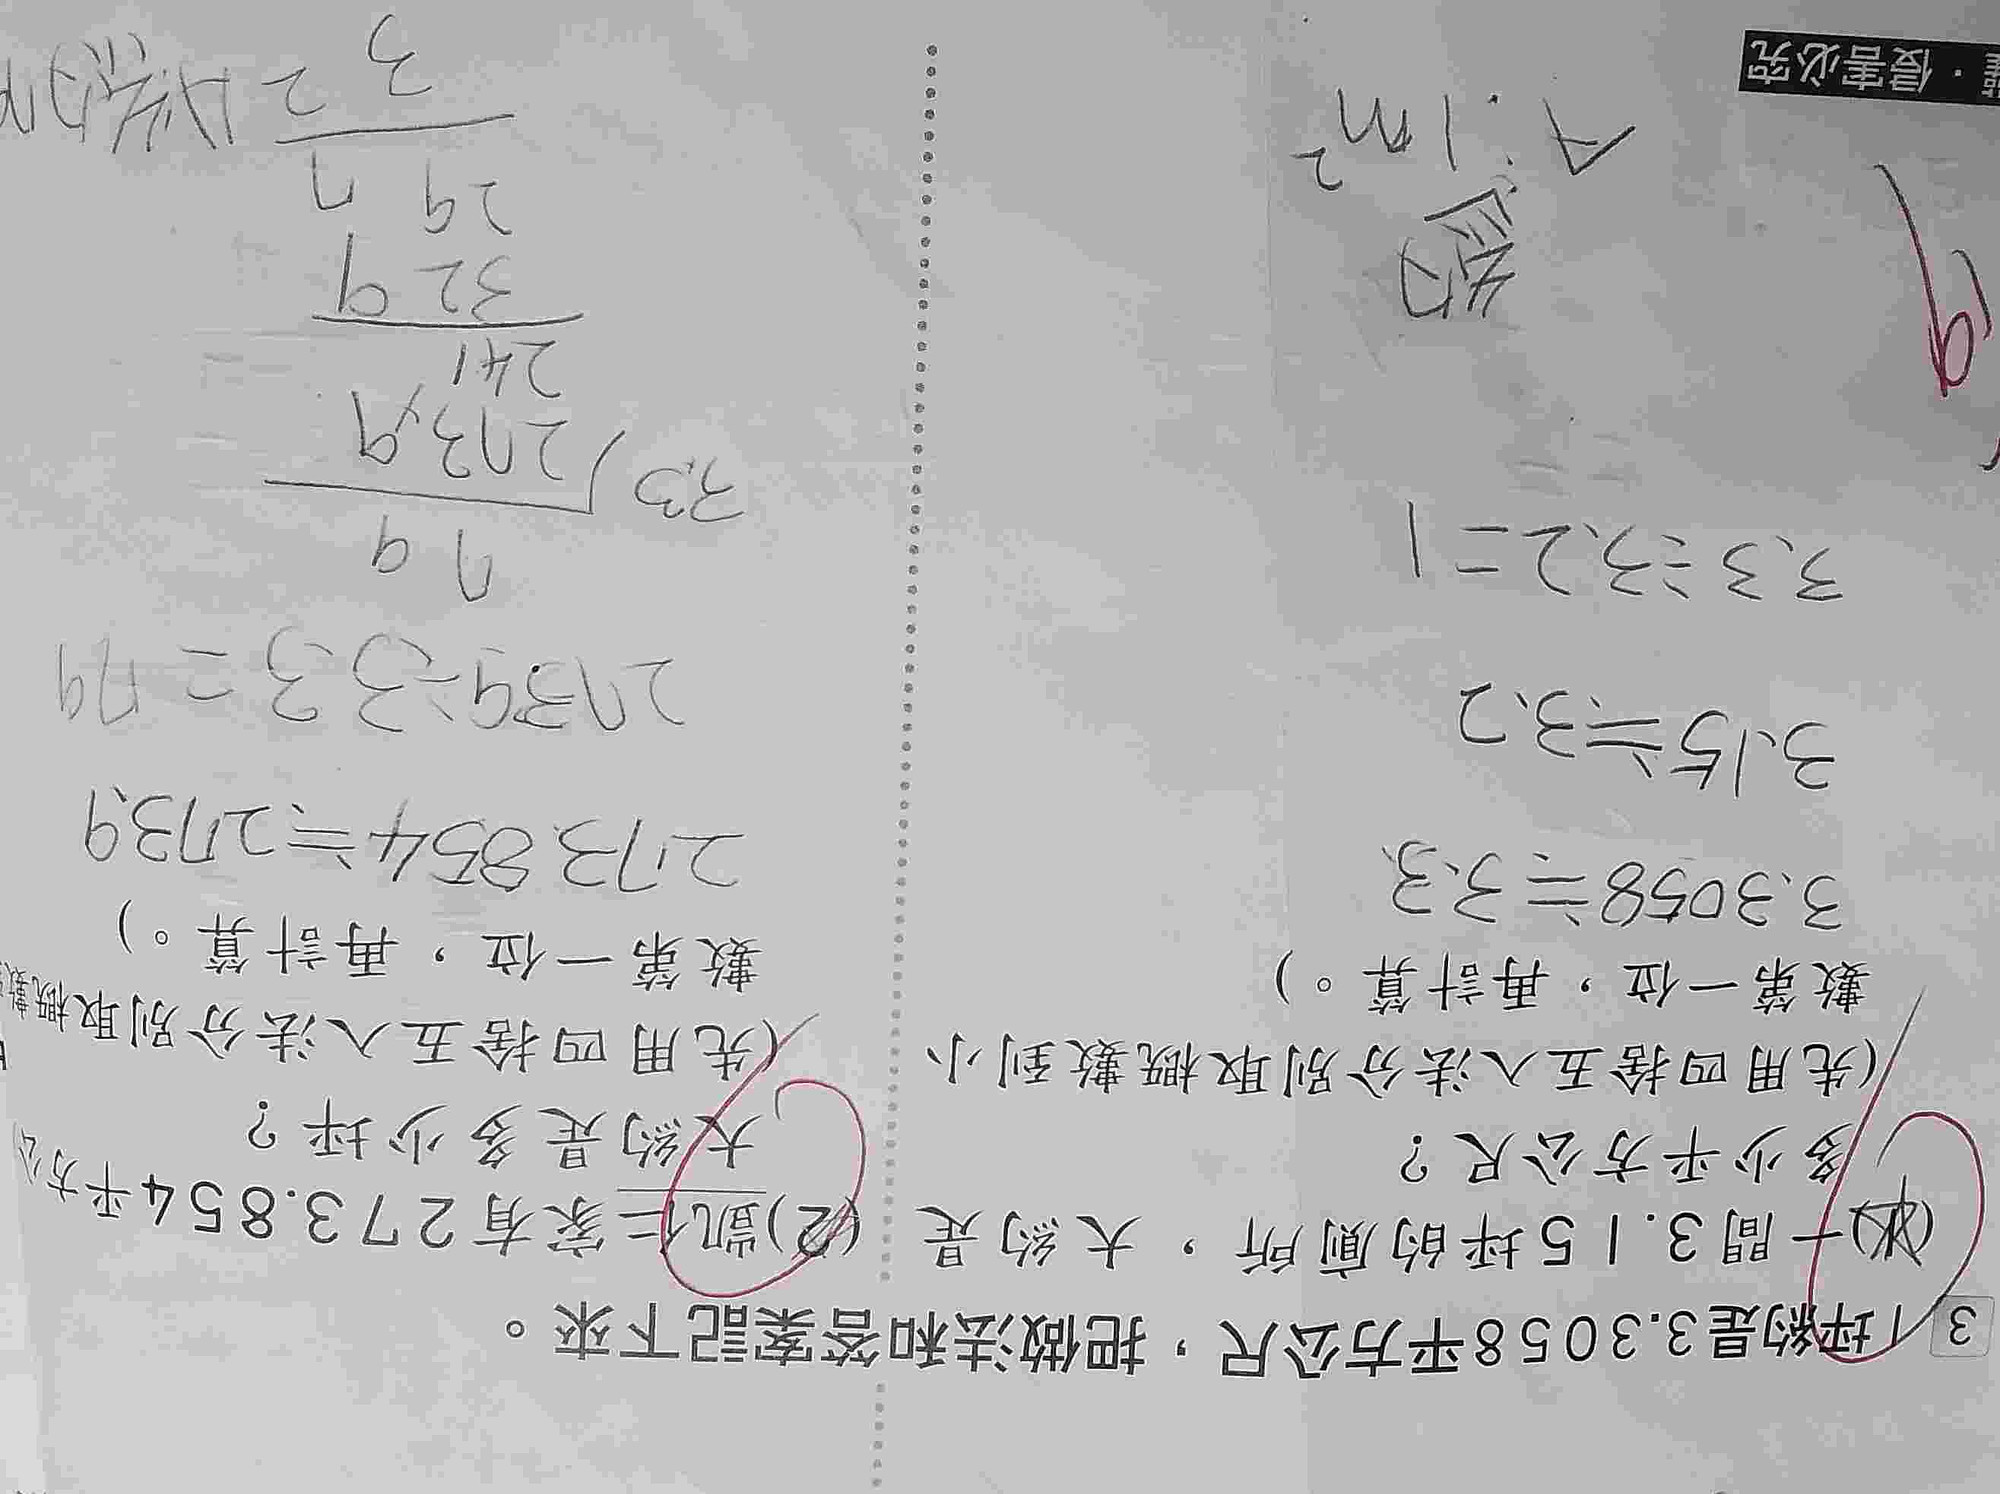 3 1坪約是3.3058平方公尺，把做法和答案記下來。
(1)一間3.15坪的廁所，大約是
多少平方公尺？
(先用四捨五入法分別取概數到小
數第一位，再計算。)
3.3058≒3.3
3.15≒3.2
3.3÷3.2=1
約
A:1m²
(2)凱仁家有273.854平方公
大約是多少坪？
(先用四捨五入法分別取概數
數第一位，再計算。)
273.854≒273.9
273.9÷3.3=79
79
3.3 273.9
241
329
297
32
3
・侵害必究